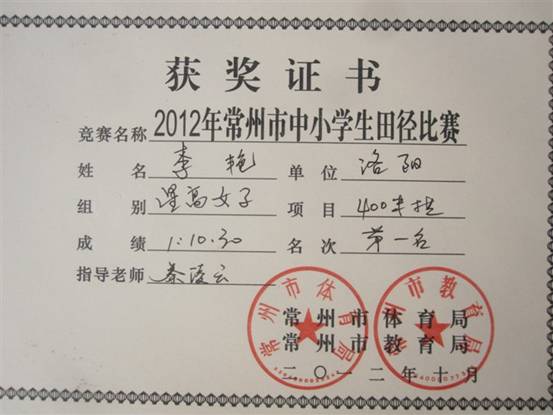 获奖证书
竞赛名称 2012年常州市中小学生田径比赛
姓名 李艳 单位 洛阳
组别 高女子 项目 400米栏
成绩 1:10.30 名次 第一名
指导老师 秦凌云
常州市体育局
常州市教育局
二〇一二年十月
常州市体育局
常州市教育局